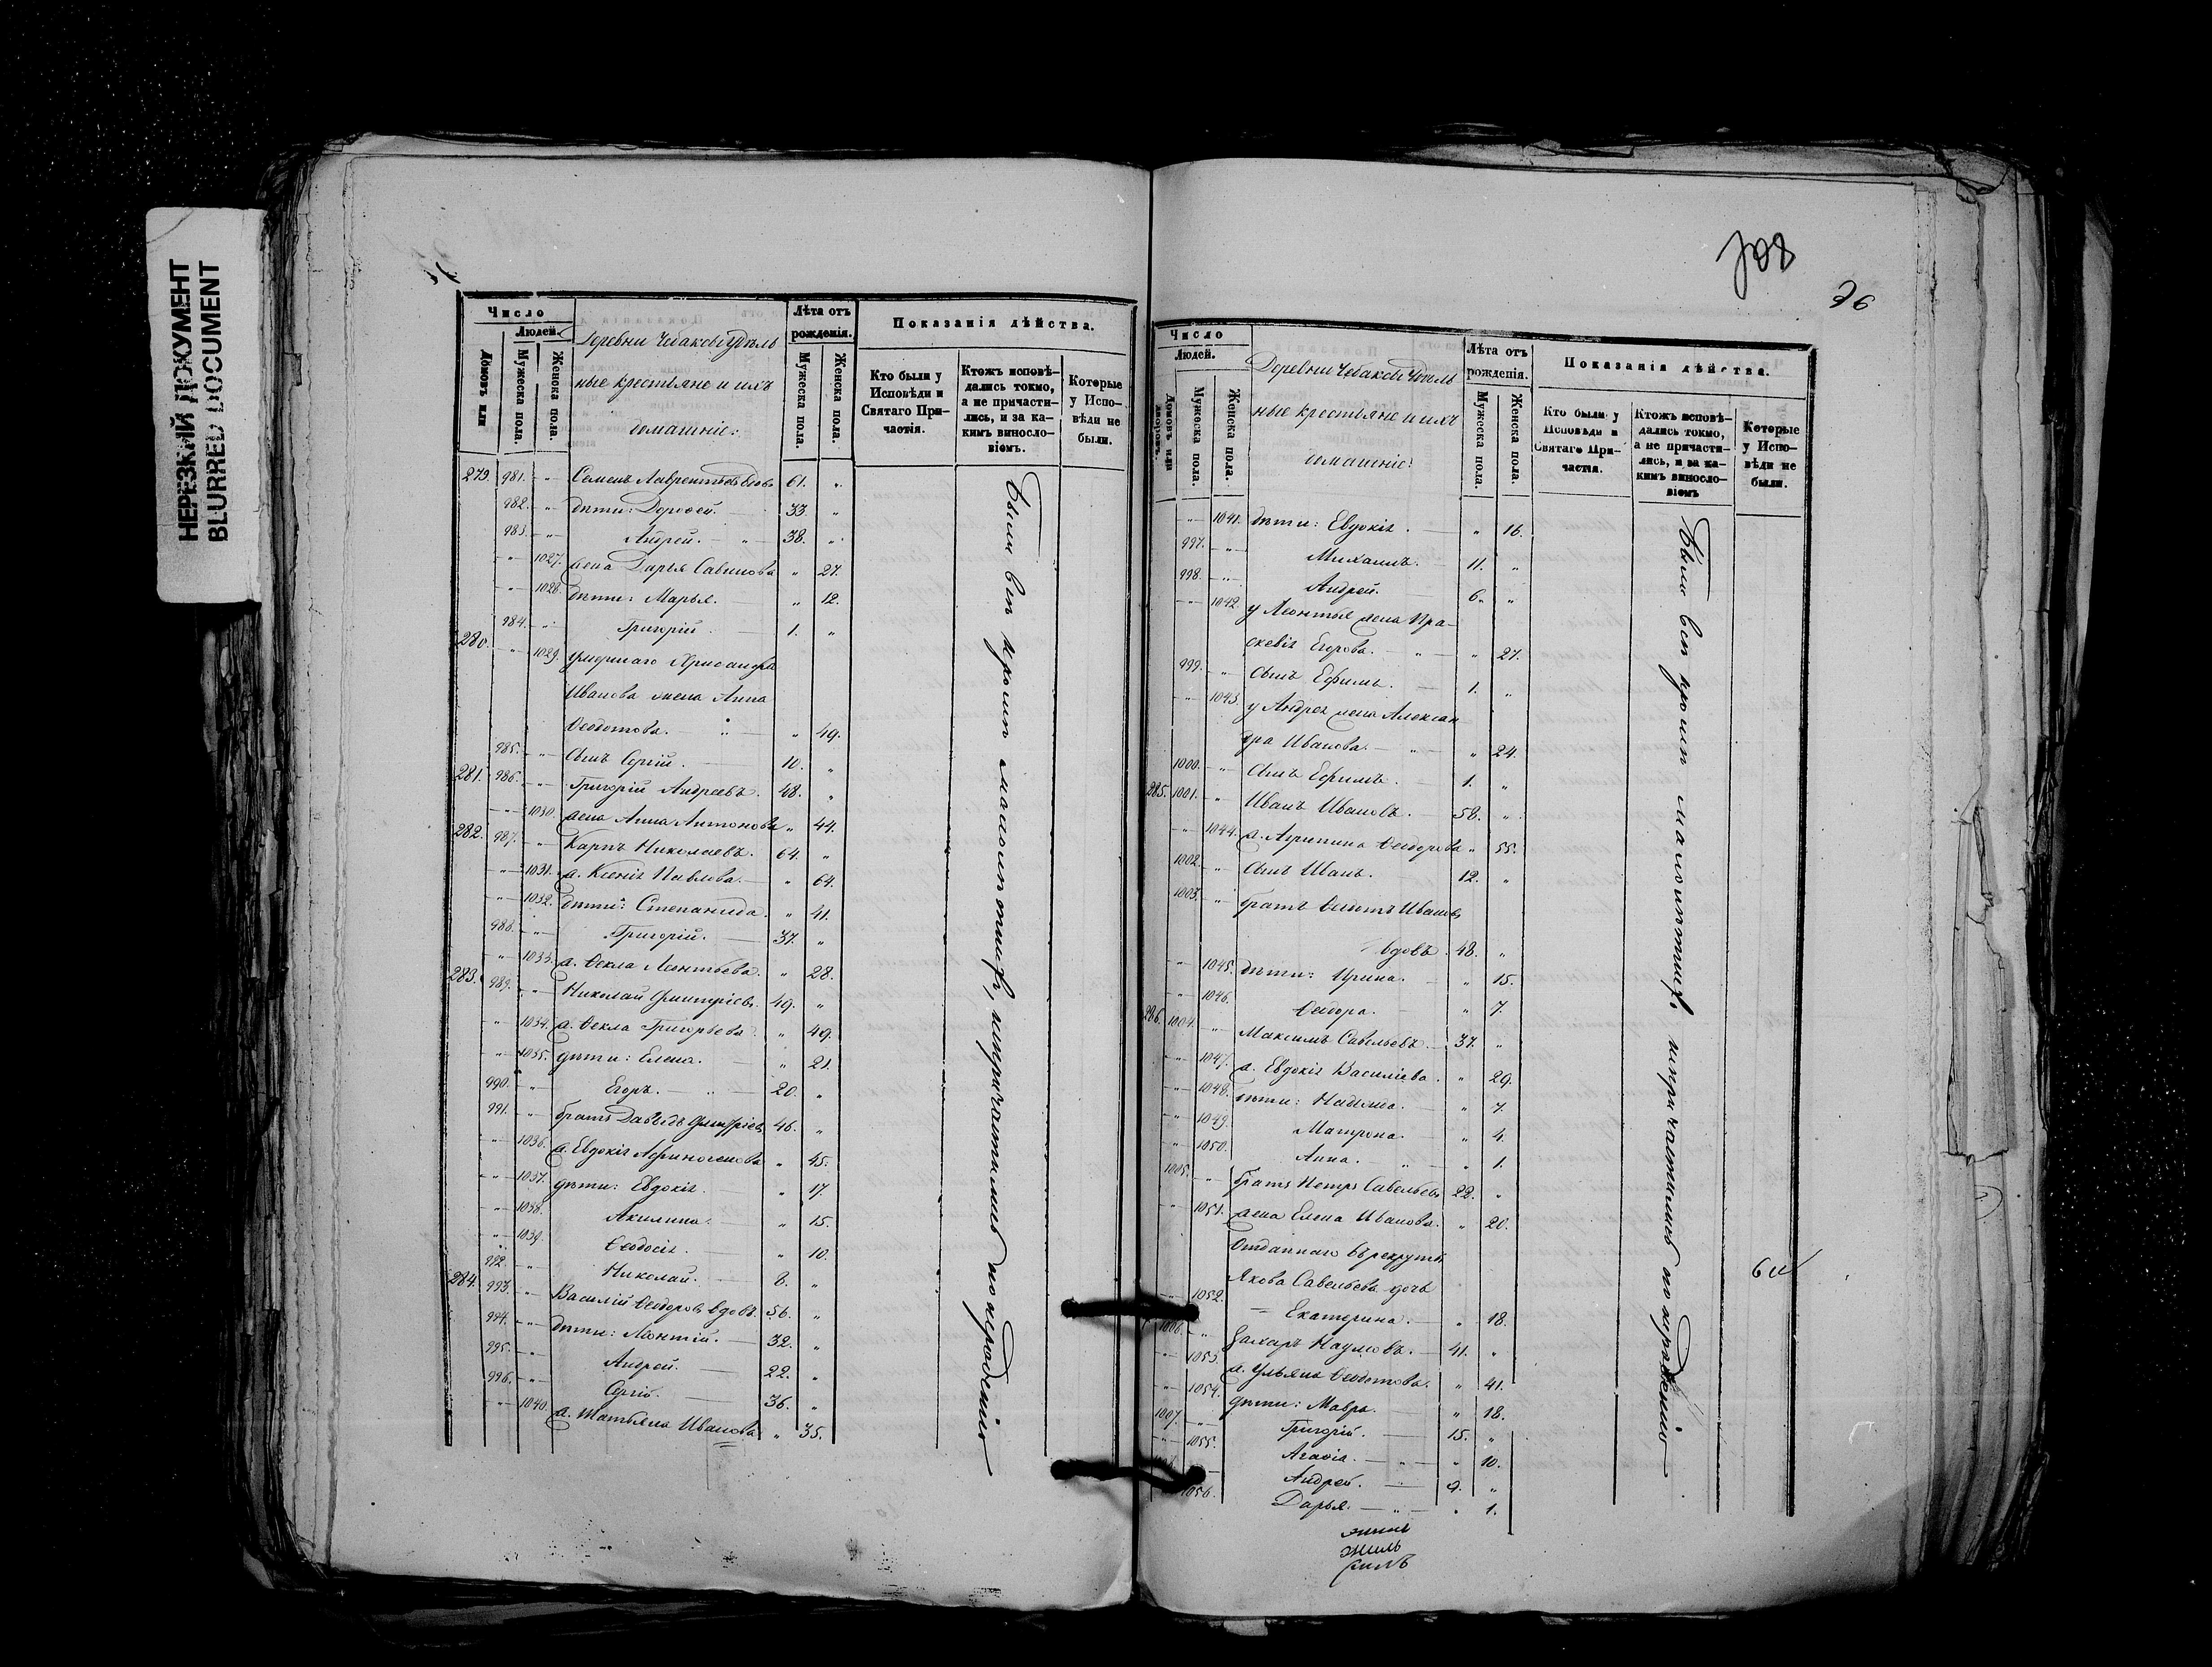 НЕРЕЗКИЙ ДОКУМЕНТ
BLURRED DOCUMENT
Число
Людей.
Домовъ или
Мужеска пола.
Женска пола.
Деревни Чебаково Удѣль
ные крестьяне и ихъ
домашніе:
Лѣта отъ
рожденія.
Мужеска пола.
Женска пола.
Показанія дѣйства.
Кто были у
Исповѣди и
Святаго При-
частія.
Ктожъ исповѣ-
дались токмо,
а не причасти-
лись, и за ка-
кимъ винносло-
віемъ.
Которые
у Испо-
вѣди не
были.
279. 981. Семенъ Лаврентьевъ вдовъ 61.
982. дѣти: Дорофей. 33.
983. Андрей. 38.
1027. жена Дарья Савинова 27.
1028. дѣти: Марья. 12.
984. Григорій. 1.
280. 1029. умершаго Хрисанфа
Иванова жена Анна
Ѳеодотова. 49.
985. сынъ Сергій. 10.
281. 986. Григорій Андреевъ. 48.
1030. жена Анна Антонова 44.
282. 987. Карпъ Николаевъ. 64.
1031. ж. Ксенія Павлова. 64.
1032. дѣти: Степанида. 41.
988. Григорій. 37.
1033. ж. Ѳекла Леонтьева. 28.
283. 989. Николай Дмитріевъ. 49.
1034. ж. Ѳекла Григорьева 49.
1035. дѣти: Елена. 21.
990. Егоръ. 20.
991. братъ Давыдъ Дмитріевъ 46.
1036. ж. Евдокія Афиногенова 45.
1037. дѣти: Евдокія. 17.
1038. Акилина. 15.
1039. Ѳеодосія. 10.
992. Николай. 8.
284. 993. Василій Ѳеодоровъ вдовъ. 56.
994. дѣти: Леонтій. 32.
995. Андрей. 22.
996. Сергій. 36.
1040. ж. Татьяна Иванова 35.
Были всѣ кромѣ малолѣтнихъ, непричастились по нерадѣнію
76
Число
Людей.
Домовъ или
дворовъ.
Мужеска пола.
Женска пола.
Деревни Чебаково Удѣль
ные крестьяне и ихъ
домашніе:
Лѣта отъ
рожденія.
Мужеска пола.
Женска пола.
Показанія дѣйства.
Кто были у
Исповѣди и
Святаго При-
частія.
Ктожъ исповѣ-
дались токмо,
а не причасти-
лись, и за ка-
кимъ винносло-
віемъ
Которые
у Испо-
вѣди не
были.
1041. дѣти: Евдокія. 16.
997. Михаилъ. 11.
998. Андрей. 6.
1042. у Леонтья жена Пра-
скевія Егорова. 27.
999. сынъ Ефимъ. 1.
1043. у Андрея жена Алексан
дра Иванова. 24.
1000. сынъ Ефимъ. 1.
285. 1001. Иванъ Ивановъ. 58.
1044. ж. Агрипина Ѳеодорова 55.
1002. сынъ Иванъ. 12.
1003. братъ Ѳедотъ Ивановъ
вдовъ. 48.
1045. дѣти: Ирина. 15.
1046. Ѳеодора. 7.
286. 1004. Максимъ Савельевъ. 37.
1047. ж. Евдокія Василіева. 29.
1048. дѣти: Надежда. 7.
1049. Матрона. 4.
1050. Анна. 1.
1005. братъ Петръ Савельевъ 22.
1051. жена Елена Иванова. 20.
Отданнаго въ рекруты
Якова Савельева дочь
1052. Екатерина. 18.
1006. Захаръ Наумовъ. 41.
1053. ж. Ульяна Ѳеодотова. 41.
1054. дѣти: Мавра. 18.
1007. Григорій. 15.
1055. Агафія. 10.
Андрей. 9.
1056. Дарья. 1.
Были всѣ кромѣ малолѣтнихъ, непричастились по нерадѣнію